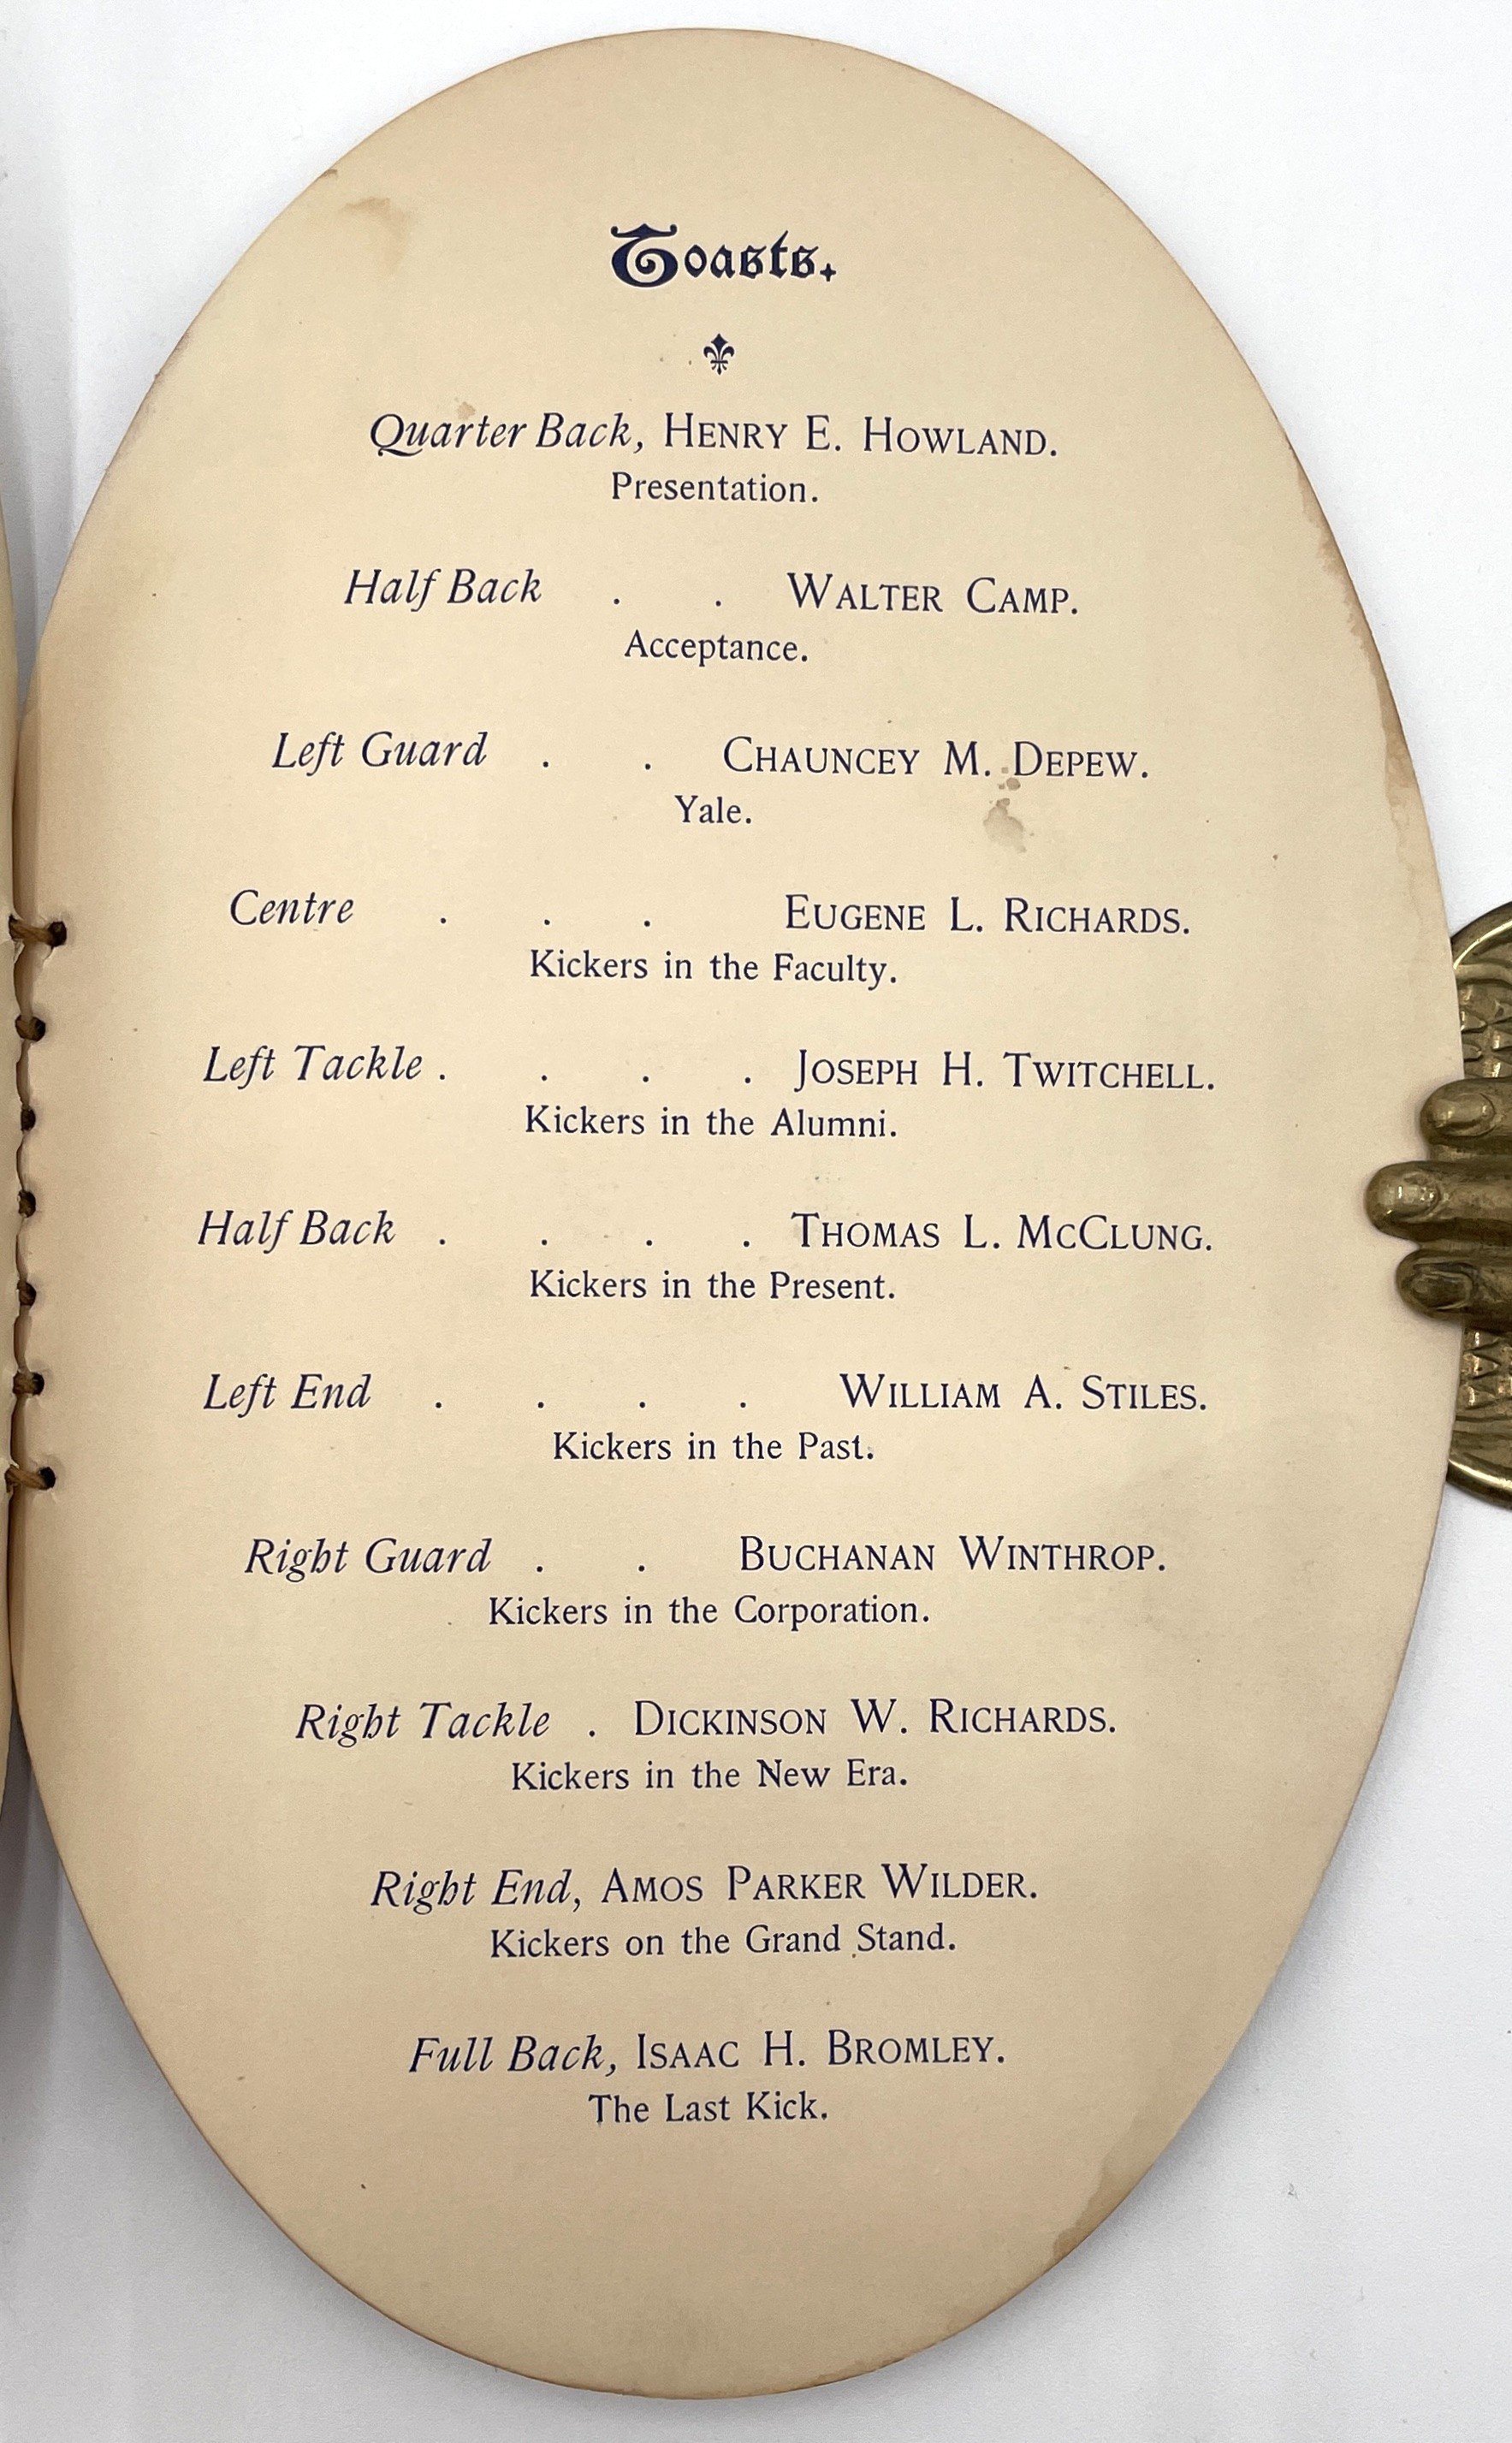 Toasts.
Quarter Back, HENRY E. HOWLAND.
Presentation.
Half Back . . WALTER CAMP.
Acceptance.
Left Guard . . CHAUNCEY M. DEPEW.
Yale.
Centre . . . EUGENE L. RICHARDS.
Kickers in the Faculty.
Left Tackle . . . . JOSEPH H. TWITCHELL.
Kickers in the Alumni.
Half Back . . . . THOMAS L. MCCLUNG.
Kickers in the Present.
Left End . . . . WILLIAM A. STILES.
Kickers in the Past.
Right Guard . . BUCHANAN WINTHROP.
Kickers in the Corporation.
Right Tackle . DICKINSON W. RICHARDS.
Kickers in the New Era.
Right End, AMOS PARKER WILDER.
Kickers on the Grand Stand.
Full Back, ISAAC H. BROMLEY.
The Last Kick.